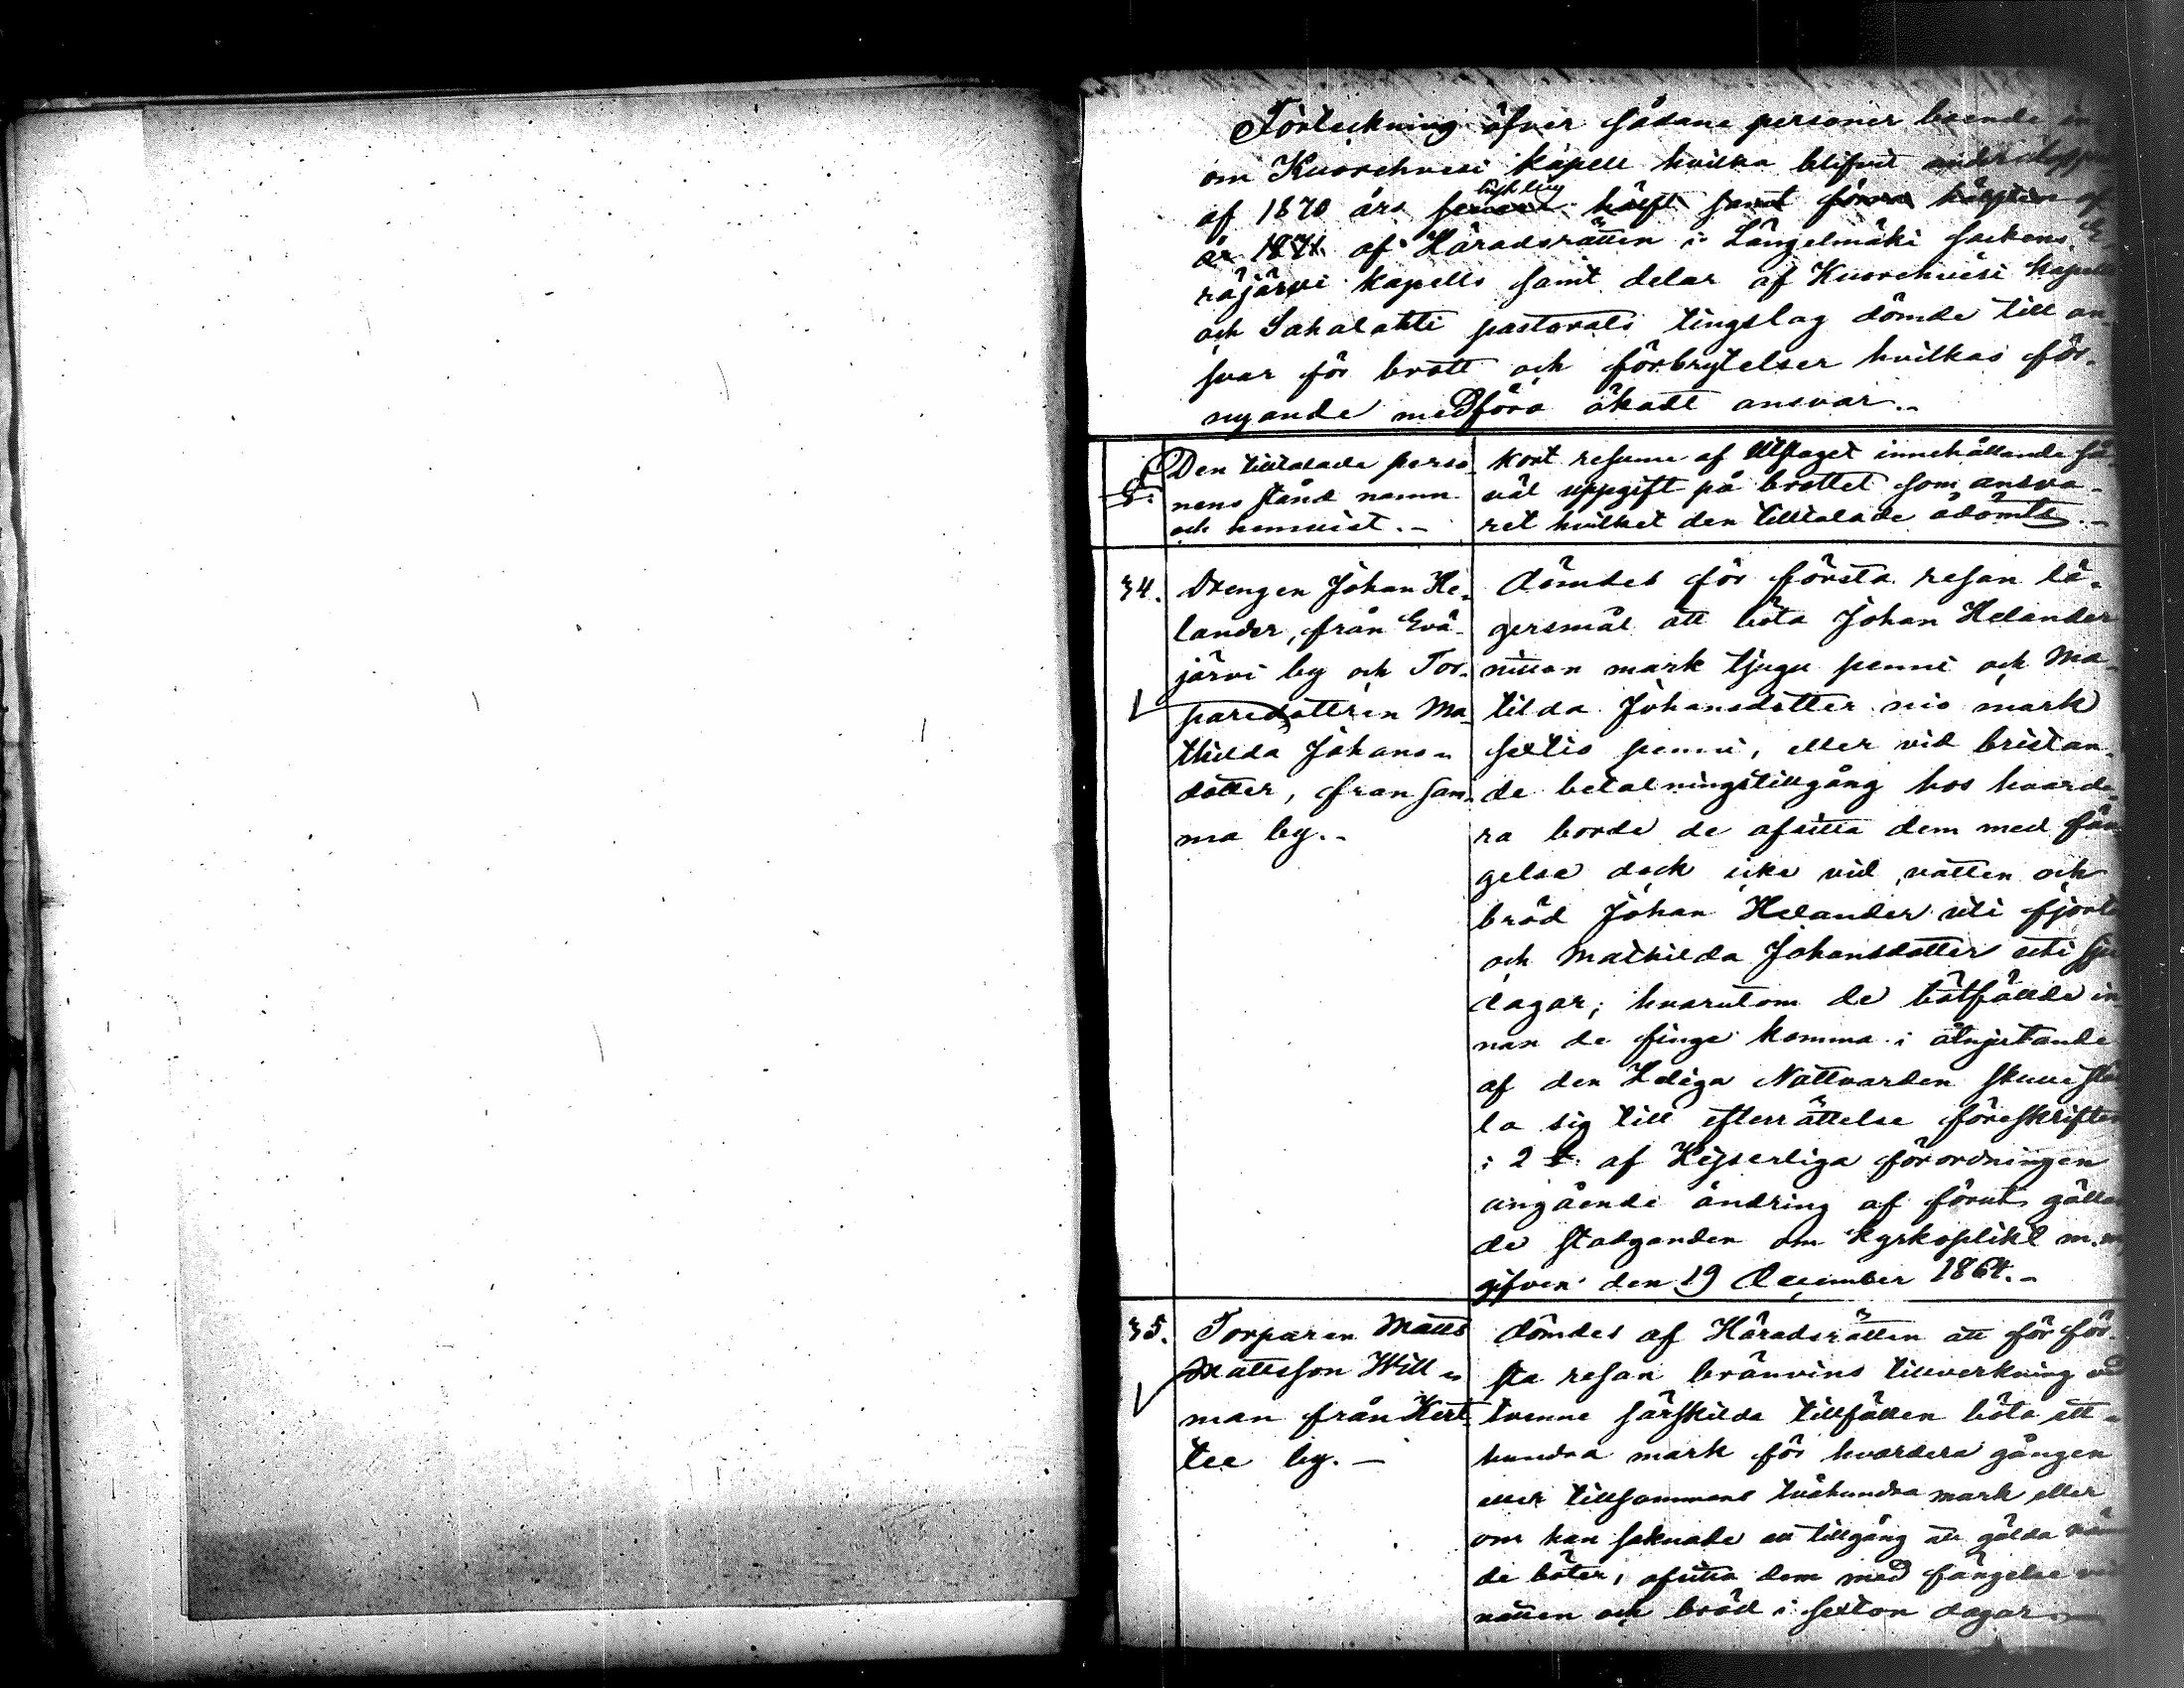 Förteckning öfver sådane personer boende in
om Kuorehvesi kapell hvilka blifvit under loppet
af 1870 års senare hälft samt förra hälften af
år 1871 af Häradsrätten i Längelmäki sockens, E
räjärvi kapells samt delar af Kuorehvesi kapells
och Sahalahti pastorats tingslag dömde till an-
svar för brott och förbrytelser hvilkas för-
nyande medföra ökadt ansvar.-
Den tilltalade perso-
nens stånd namn
och hemvist.-
Kort resume af Utslaget innehållande så-
väl uppgift på brottet som ansva-
ret hvilket den tilltalade ådömts.-
34.
Drengen Johan He-
lander, från Evä-
järvi by och Tor-
paredottren Ma-
thilda Johans-
dotter, från sam-
ma by.-
Dömdes för första resan lä-
gersmål att böta Johan Helander
nitton mark tjugu penni och Ma-
tilda Johansdotter nio mark
sextio penni, eller vid bristan-
de betalningstillgång hos hvarde-
ra borde de afsitta dem med fän
gelse dock icke vid vatten och
bröd Johan Helander uti fjorton
och Mathilda Johansdotter uti sju
dagar; hvarutom de bötfällde in
nan de finge komma i åtnjutande
af den Heliga Nattvarden skulle stäl
la sig till efterrättelse föreskriften
i 2 § af Kejserliga förordningen
angående ändring af förut gällan
de stadganden om Kyrkoplikt m.m
gifven den 19 December 1864.-
35.
Torparen Matts
Mattsson Will-
man från Kert-
tee by.-
Dömdes af Häradsrätten att för för-
sta resan bränvins tillverkning vid
tvenne särskilda tillfällen böta ett-
hundra mark för hvardera gången
eller tillsammans tvåhundra mark eller
om han saknade all tillgång att gälda näm
de böter, afsitta dem med fängelse vid
vatten och bröd i sexton dagar.-